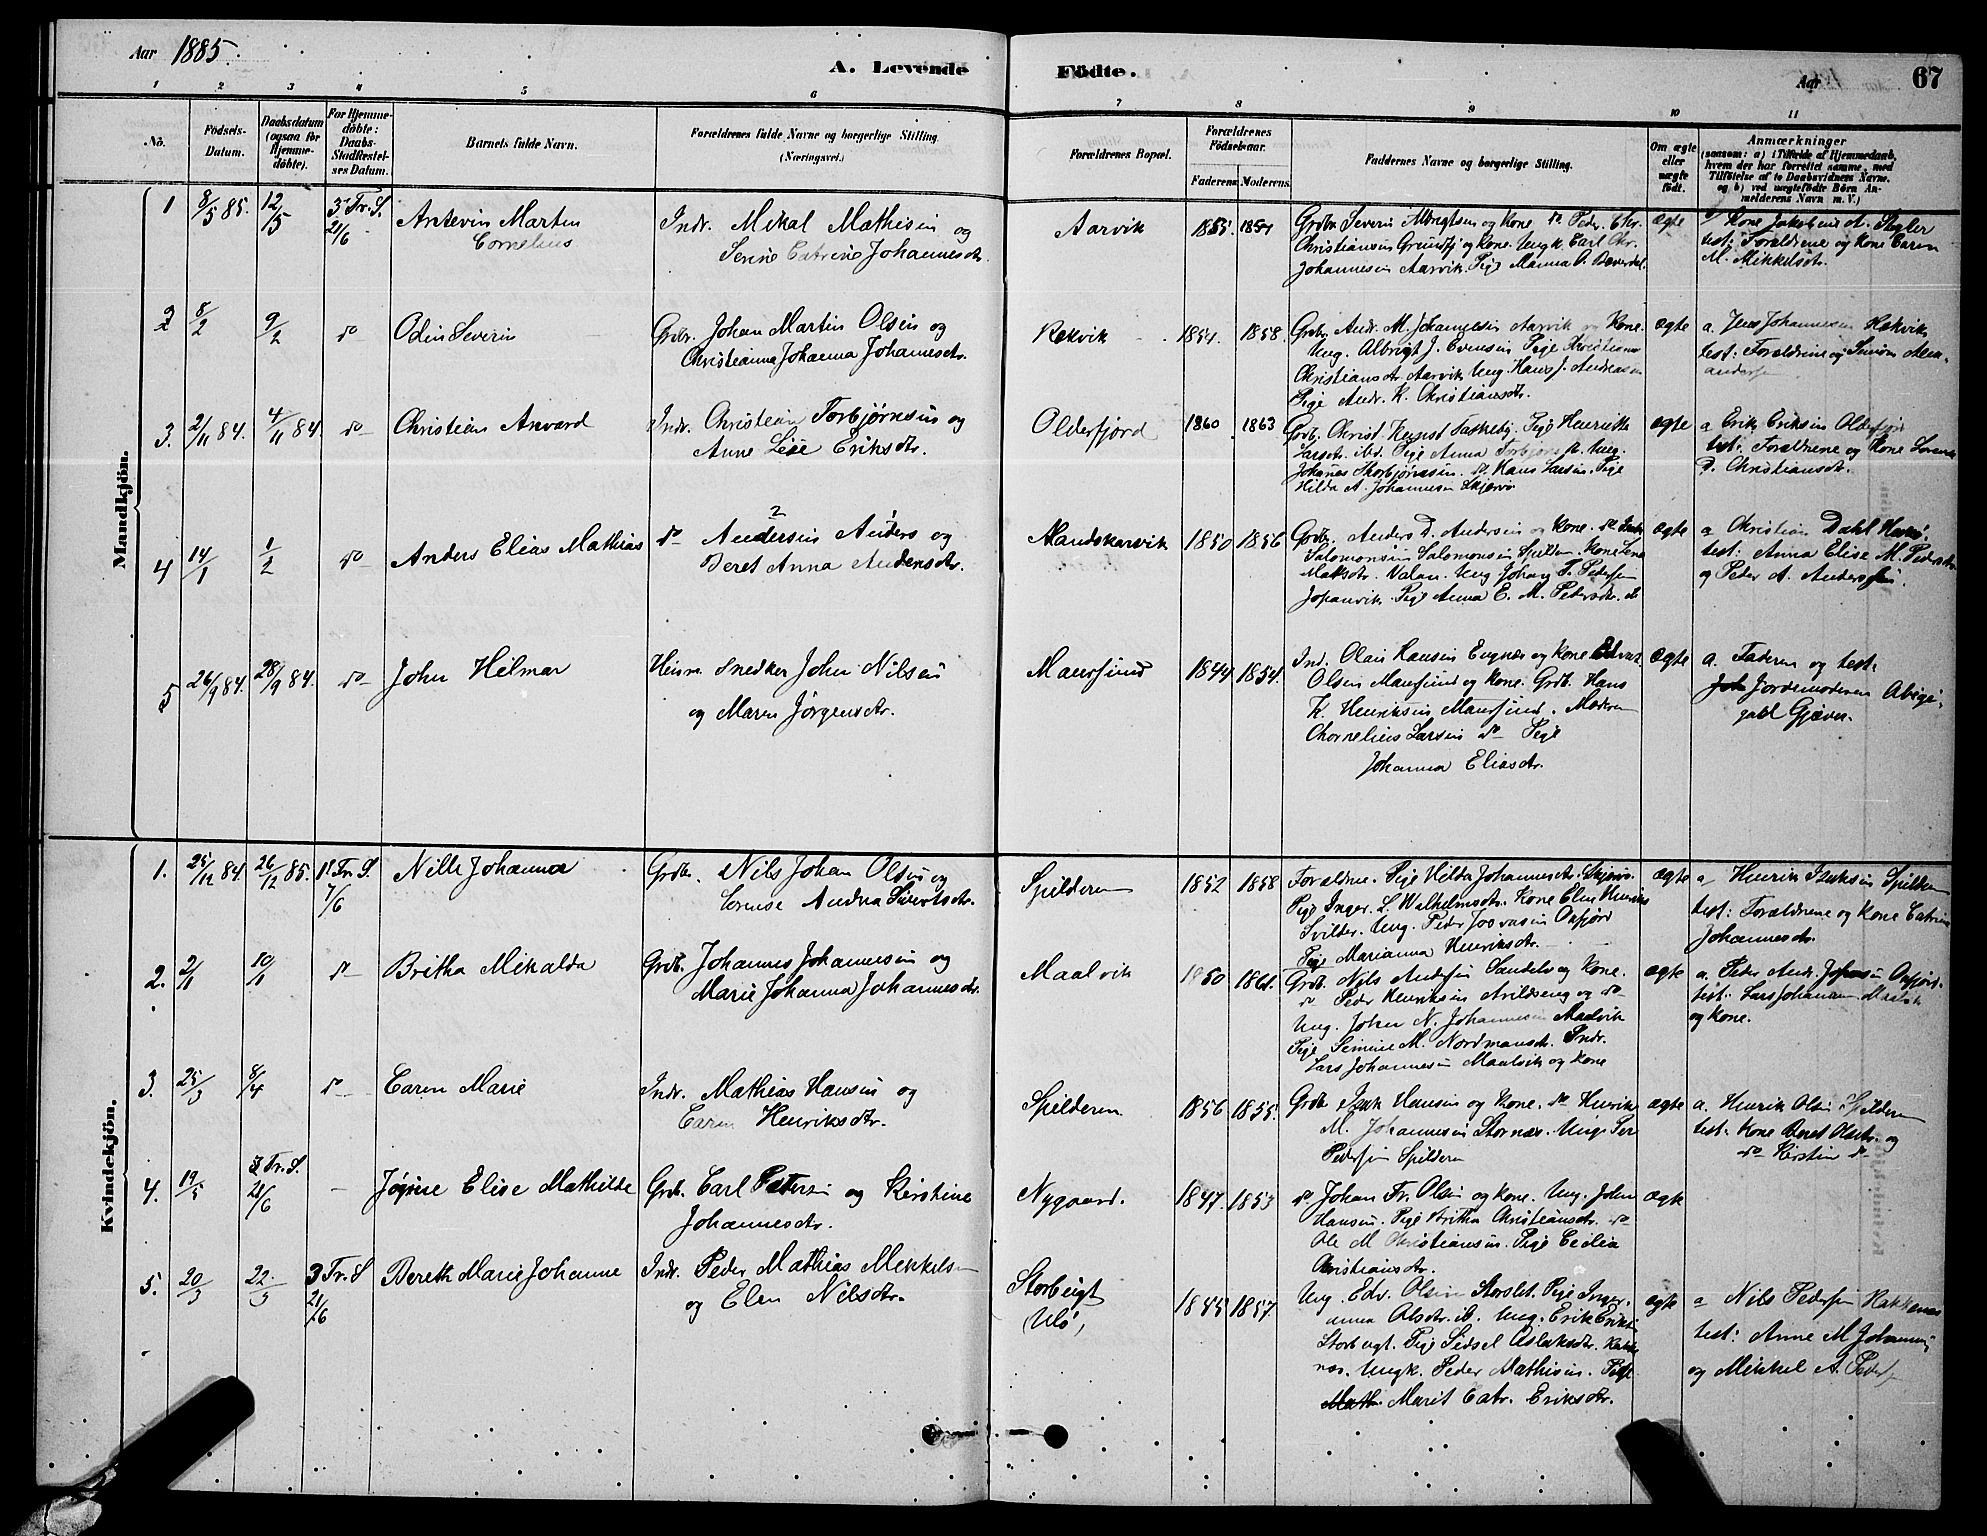 Aar 1885.
A. Levende Födte.
Aar
67
1 2 3 4 5 6 7 8 9 10 11
No.
Födsels-Datum.
Daabsdatum (ogsaa for Hjemme-döbte).
For Hjemme-döbte: Daabs-Stadfæstel-ses Datum.
Barnets fulde Navn.
Forældrenes fulde Navne og borgerlige Stilling (Næringsvei.)
Forældrenes Bopæl.
Forældrenes Födselsaar.
Faderens. Moderens.
Faddernes Navne og borgerlige Stilling.
Om ægte eller uægte födt.
Anmærkninger
(saasom: a) i Tilfælde af Hjemmedaab,
hvem der har forrettet samme, med
Tilföielse af to Daabsvidners Navne,
og b) ved uægtefödte Börn An-
melderens Navn m. V.)
Mandkjön.
1 8/5 85. 12/5 3 Tr. S. 21/6 Antevin Martin Cornelius
Indr. Mikal Mathisen og
Serine Catrine Johannesdtr.
Aarvik 1855. 1854
Grdbr Severin Albrigtsen og Kone do Peder Chr.
Christiansen Grundfj og Kone. Ungk. Carl Chr.
Johannesen Aarvik. Pige Manna O. Bæverdal.
ægte
Kone Jakobine A. Stigler
test: Forældrene og Kone Caren
M. Mikkelsdtr.
2 8/2 9/2 do Odin Severin
Grdbr. Johan Martin Olsen og
Christianna Johanna Johannesdtr.
Rekvik 1854. 1858.
Grdbr Andr. M. Johannesen Aarvik og Kone.
Ung. Albrigt J. Evensen Pige Kristiane
Christiansdtr Aarvik Ung. Hans J. Andreasen
Pige Andr. K. Christiansdtr.
ægte
a. Jens Johannesen Rekvik
test: Forældrene og Simon Alex-
andersen
3. 2/11 84. 4/11 84. do Christian Anvard
Indr. Christian Torbjørnsen og
Anne Lise Eriksdtr.
Olderfjord 1860 1863
Grdb. Christ. Kunst Taskeby. Pige Henriette
Larsdtr. ibd. Pige Anna Torbjørnsdtr. Ung.
Johannes Thorbjørnsen. do Hans Larsen. Pige
Hilda A. Johannesen Skjervø
ægte
a Erik Eriksen Olderfjord
test. Forældrene og Kone Lorense
P. Christiansdtr.
4 14/1 1/2 do Anders Elias Mathias
do Andersen Anders og
Beret Anna Andersdtr.
Mandskarvik 1850 1856
Grdb. Anders D. Andersen og Kone. do Isak
Salomonsen Salomonsen Spilderen. Kone Lena
Matsdtr. Valan. Ung Johan T. Pedersen
Jøpanvik. Pige Anna E. M. Pedersdtr. do
ægte
a Christian Dahl Havnø
test: Anna Elise M. Pedersdtr
og Peder A. Andersen.
5 26/9 84. 28/9 84. do John Hilmar
Heinm Snedker John Nilsen
og Maren Jørgensdtr.
Maursund 1844 1854.
Ind. Olais Hansen Engnæs og Kone Edvard
Olsen Maursund og Kone. Grdb. Hans
K. Henriksen Maursund. Moderen
Chornelius Larsen do Pige
Johanna Eliasdtr.
ægte
a. Faderen og test.
Jordemoderen Abige-
gael Gjæver.
Kvindekjön.
1. 25/12 84. 26/12 85. 1 Tr. S. 7/6 Nille Johanna
Grdbr. Nils Johan Olsen og
Lorense Andrea Sivertsdtr.
Spilderen 1852 1858
Forældrene. Pige Hilda Johannesdtr. Skjervø.
Pige Inger L. Wilhelmsdtr. Kone Elen Henriks
Svilder. Ung. Peder Josvasen Oxfjord
Pige Marianna Henriksdtr.
ægte
a Henrik Isaksen Spilderen
test: Forældrene og Kone Catrine
Johannesdtr.
2. 2/1 10/1 do Britha Mikalda
Grdb. Johannes Johannesen og
Marie Johanna Johannesdtr.
Maalvik 1850 1861.
Grdb. Nils Andersen Sandelv og Kone.
do Peder Henriksen Avildseng og do
Ung. Johan N. Johannesen Maalvik
Pige Simine M. Nordmansdtr. Indr.
Lars Johannesen Maalvik og Kone
ægte
a. Peder Andr. Johnsen Oxfjord.
test. Lars Johannesen Maalvik
og Kone.
3. 25/3 8/4 do Caren Marie
Indr. Mathias Hansen og
Caren Henriksdtr.
Spilderen. 1856 1855.
Grdb Isak Hansen og Kone. do Henrik
M. Johannesen Stornæs. Ung. Per
Pedersen Spilderen
ægte
a. Henrik Olsen Spilderen
test. Kone Beret Olsdtr. og
do Kirstin do
4. 19/5 3 Tr. S. 21/6 - Jørgine Elise Mathilde
Grdb. Carl Petersen og Kirstine
Johannesdtr.
Nygaard. 1847. 1853
do Johan Fr. Olsen og Kone. Ung. John
Hansen. Pige Britha Christiansdtr. do
Ole M. Christiansen. Pige Cecilia
Christiansdtr.
ægte
5. 20/3 22/3 3 Tr. S 21/6 Bereth Marie Johanne
Indr. Peder Mathias Mikkelsen
og Elen Nilsdtr.
Storbugt
(Ulø)
1855 1857.
Ung. Edv. Olsen Storslet. Pige Inger-
anna Olsdtr. ib. Ung. Erik Eriksen
Storbugt. Pige Sidsel Aslaksdtr. Rakke-
næs. Ungk. Peder Mathisen. Pige
Marit Catr. Eriksdtr.
ægte
a Nils Pedersen Rakkenæs
test: Anne M. Johannesen
og Mikkel A. Peders